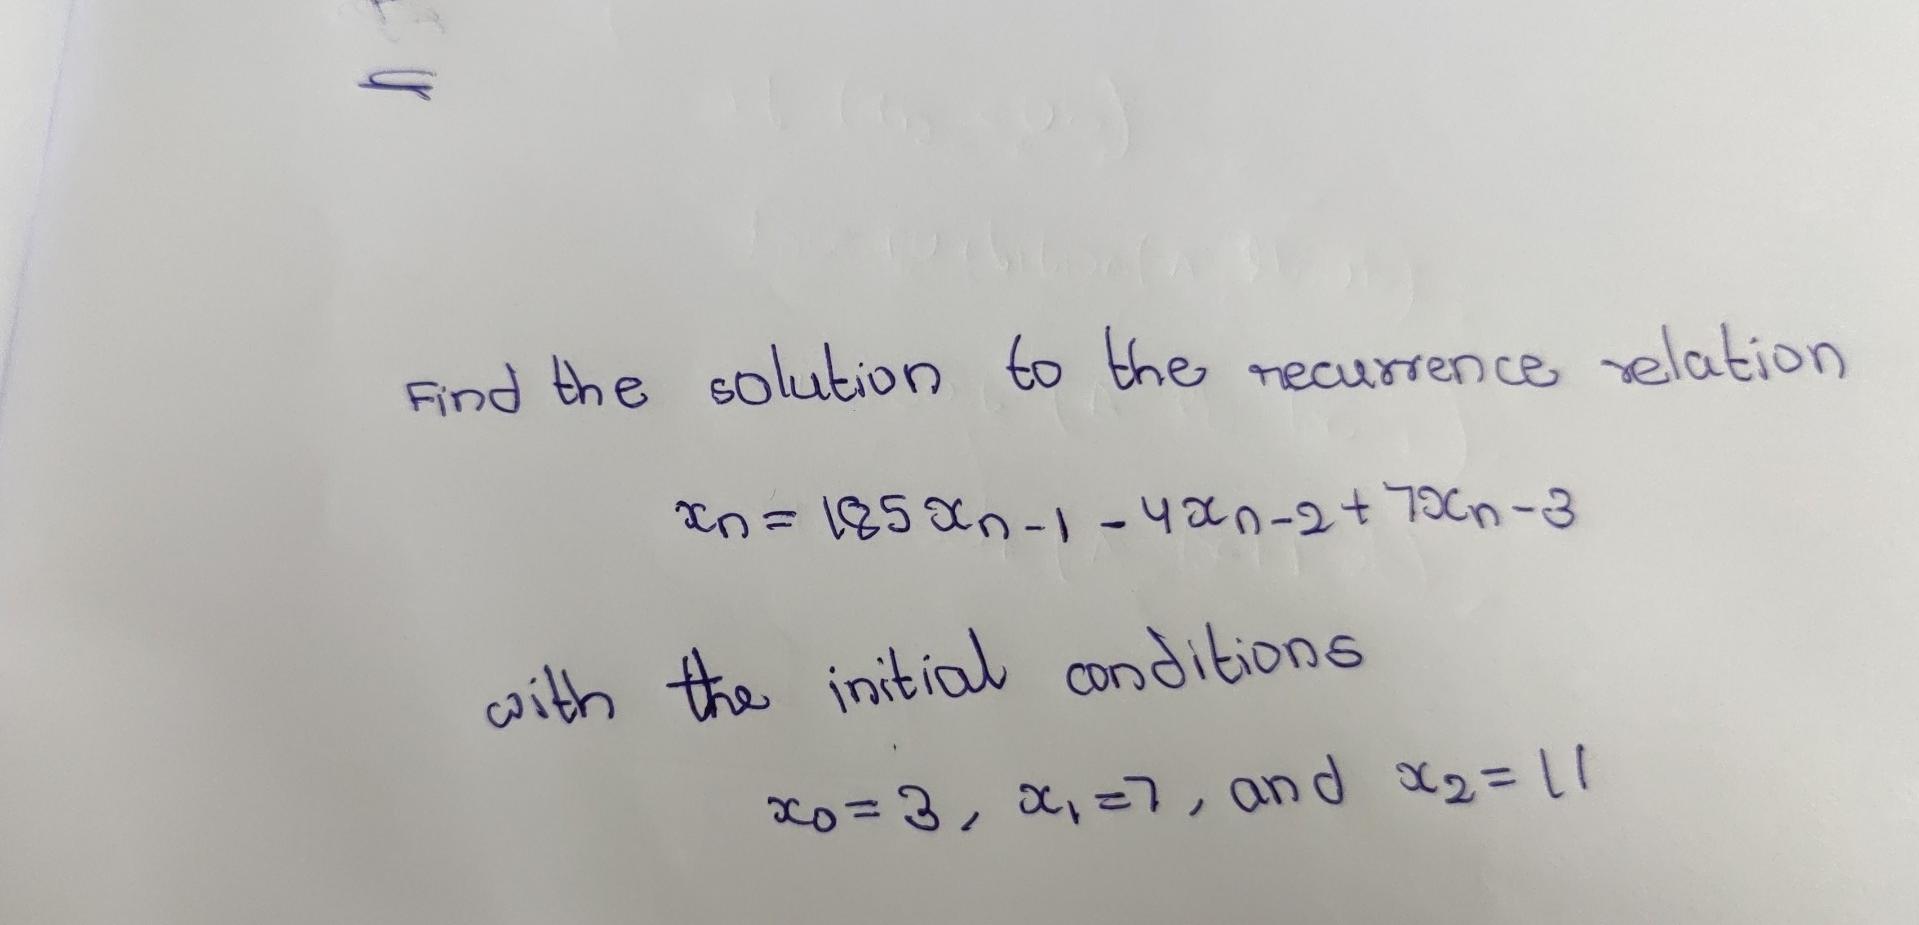 Find the solution to the recurrence relation
xn = 185xn-1 - 4xn-2 + 7xn-3
with the initial conditions
x0 = 3, x1 = 7, and x2 = 11